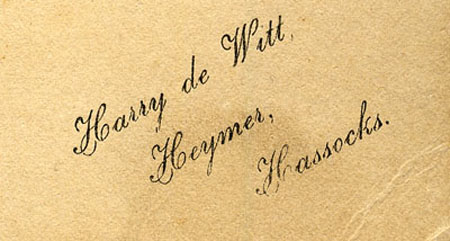 Harry de Witt,
Heymer,
Hassocks.